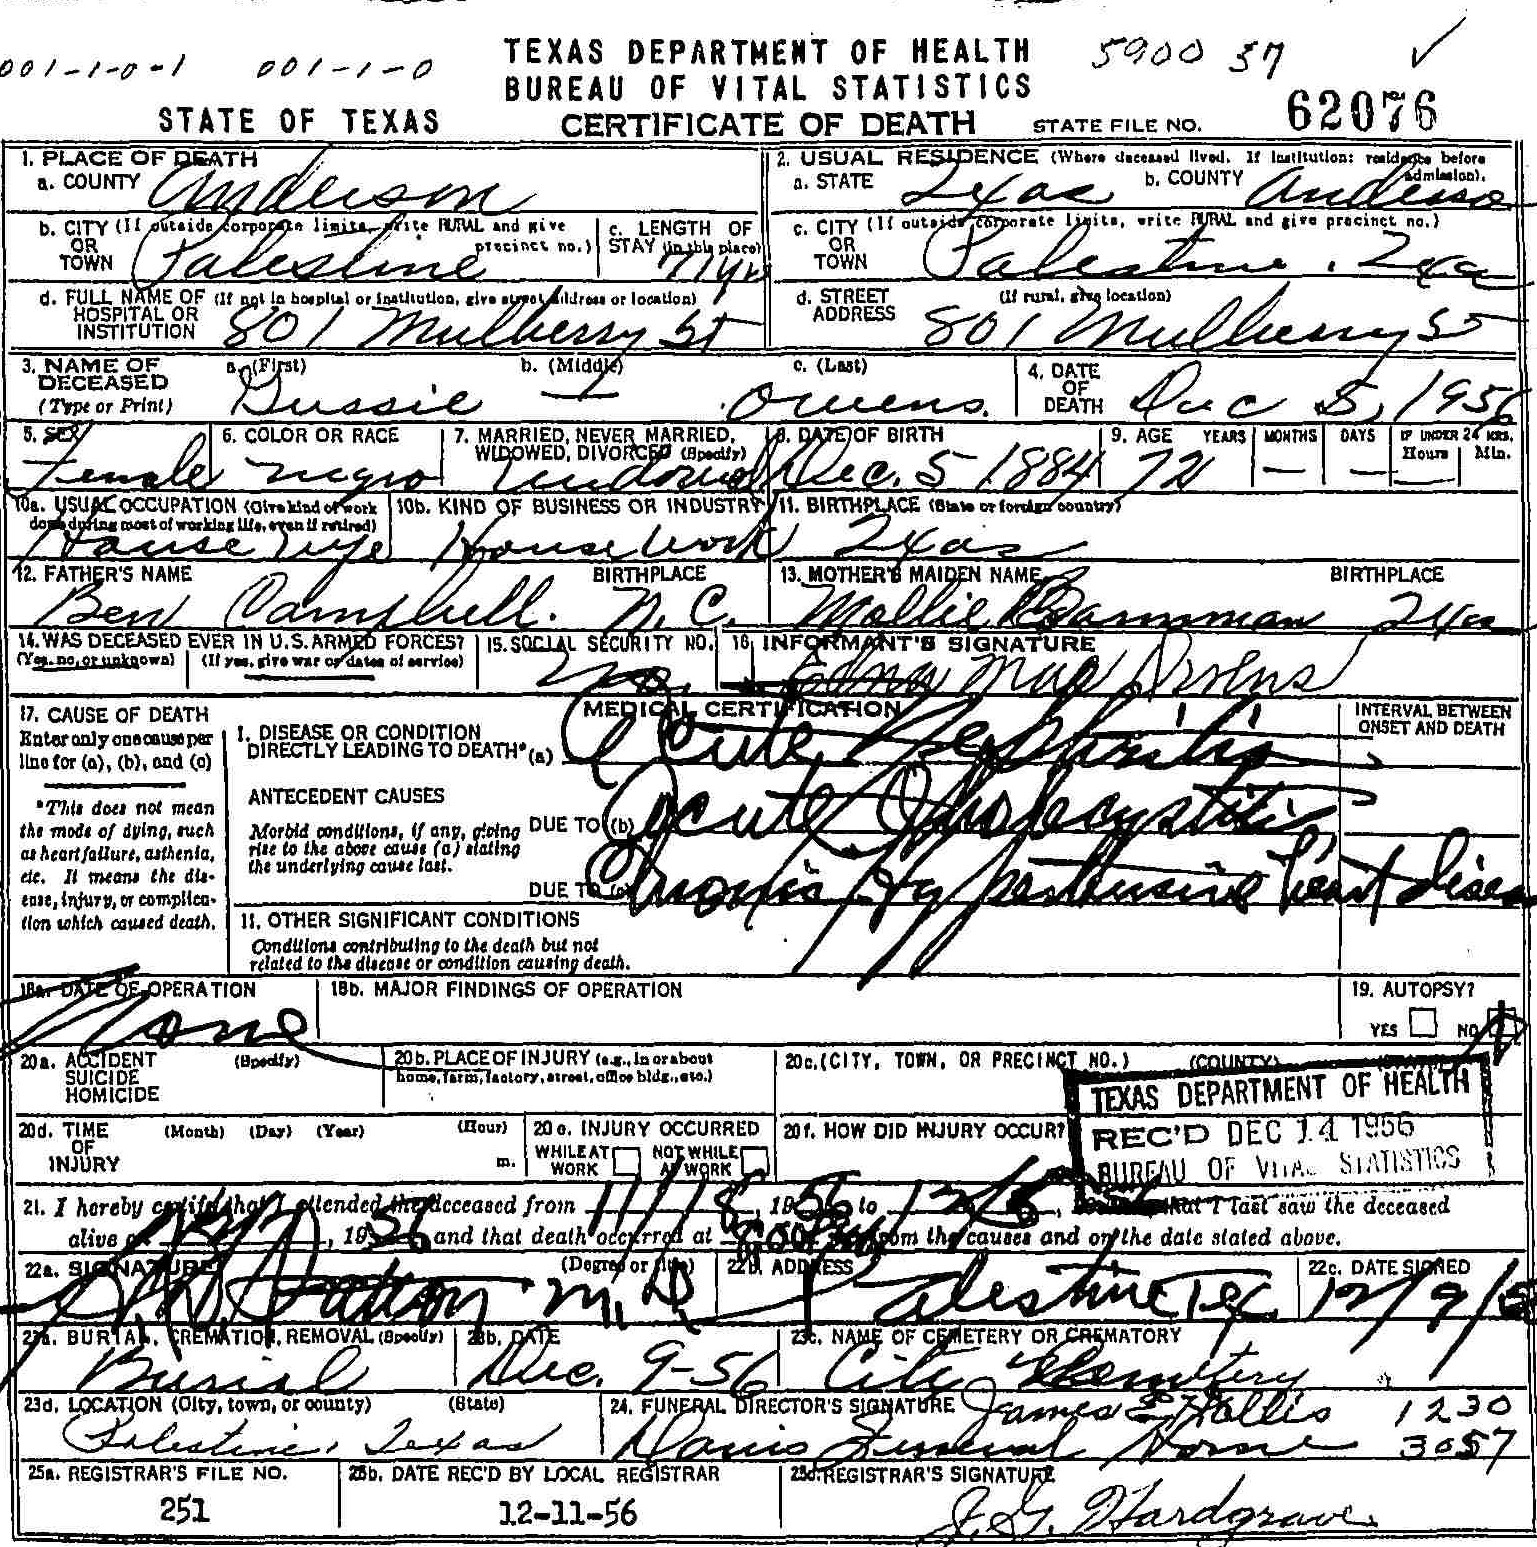 001-1-0-1 001-1-0
TEXAS DEPARTMENT OF HEALTH 5900 37
BUREAU OF VITAL STATISTICS
STATE OF TEXAS CERTIFICATE OF DEATH STATE FILE NO. 62076
1. PLACE OF DEATH
a. COUNTY Anderson
2. USUAL RESIDENCE (Where deceased lived. If institution: residence before admission).
a. STATE Texas b. COUNTY Anderson
b. CITY (If outside corporate limits, write RURAL and give precinct no.)
OR
TOWN Palestine
c. LENGTH OF
STAY (in this place)
c. CITY (If outside corporate limits, write RURAL and give precinct no.)
OR
TOWN Palestine, Texas
d. FULL NAME OF (If not in hospital or institution, give street address or location)
HOSPITAL OR
INSTITUTION 801 Mulberry St
d. STREET (If rural, give location)
ADDRESS 801 Mulberry St
3. NAME OF
DECEASED
(Type or Print)
a. (First) b. (Middle) c. (Last)
Gussie — Owens.
4. DATE
OF
DEATH Dec 5, 1956
5. SEX
Female
6. COLOR OR RACE
negro
7. MARRIED, NEVER MARRIED,
WIDOWED, DIVORCED (Specify)
Widowed
8. DATE OF BIRTH
Dec. 5 1884
9. AGE YEARS MONTHS DAYS IF UNDER 24 HRS.
Hours Min.
72 — — —
10a. USUAL OCCUPATION (Give kind of work
done during most of working life, even if retired)
House wife
10b. KIND OF BUSINESS OR INDUSTRY
Housework
11. BIRTHPLACE (State or foreign country)
Texas
12. FATHER'S NAME BIRTHPLACE
Ben Campbell. N.C.
13. MOTHER'S MAIDEN NAME BIRTHPLACE
Mollie Texas
14. WAS DECEASED EVER IN U.S. ARMED FORCES?
(Yes, no, or unknown) (If yes, give war or dates of service)
15. SOCIAL SECURITY NO.
no.
16. INFORMANT'S SIGNATURE
Edna Mae Owens
MEDICAL CERTIFICATION
17. CAUSE OF DEATH
Enter only one cause per
line for (a), (b), and (c)
*This does not mean
the mode of dying, such
as heart failure, asthenia,
etc. It means the dis-
ease, injury, or complica-
tion which caused death.
I. DISEASE OR CONDITION
DIRECTLY LEADING TO DEATH* (a) Acute Nephritis
INTERVAL BETWEEN
ONSET AND DEATH
ANTECEDENT CAUSES
Morbid conditions, if any, giving
rise to the above cause (a) stating
the underlying cause last.
DUE TO (b) Acute Cholecystitis
DUE TO (c) Chronic Hypertensive heart disease
II. OTHER SIGNIFICANT CONDITIONS
Conditions contributing to the death but not
related to the disease or condition causing death.
18a. DATE OF OPERATION
None
18b. MAJOR FINDINGS OF OPERATION
19. AUTOPSY?
YES NO
20a. ACCIDENT (Specify)
SUICIDE
HOMICIDE
20b. PLACE OF INJURY (e.g., in or about
home, farm, factory, street, office bldg., etc.)
20c. (CITY, TOWN, OR PRECINCT NO.) (COUNTY) (STATE)
TEXAS DEPARTMENT OF HEALTH
REC'D DEC 14 1956
BUREAU OF VITAL STATISTICS
20d. TIME (Month) (Day) (Year) (Hour)
OF
INJURY m.
20e. INJURY OCCURRED
WHILE AT WORK NOT WHILE AT WORK
20f. HOW DID INJURY OCCUR?
21. I hereby certify that I attended the deceased from 11/18, 1956 to 12/5, that I last saw the deceased
alive on, 1956 and that death occurred at from the causes and on the date stated above.
22a. SIGNATURE (Degree or title)
M.D.
22b. ADDRESS
Palestine Tex.
22c. DATE SIGNED
12/9/56
23a. BURIAL, CREMATION, REMOVAL (Specify)
Burial
23b. DATE
Dec. 9-56
23c. NAME OF CEMETERY OR CREMATORY
City Cemetery
23d. LOCATION (City, town, or county) (State)
Palestine, Texas
24. FUNERAL DIRECTOR'S SIGNATURE James E. Hollis 1230
Davis Funeral Home 3057
25a. REGISTRAR'S FILE NO.
251
25b. DATE REC'D BY LOCAL REGISTRAR
12-11-56
25c. REGISTRAR'S SIGNATURE
J. G. Hardgrave.